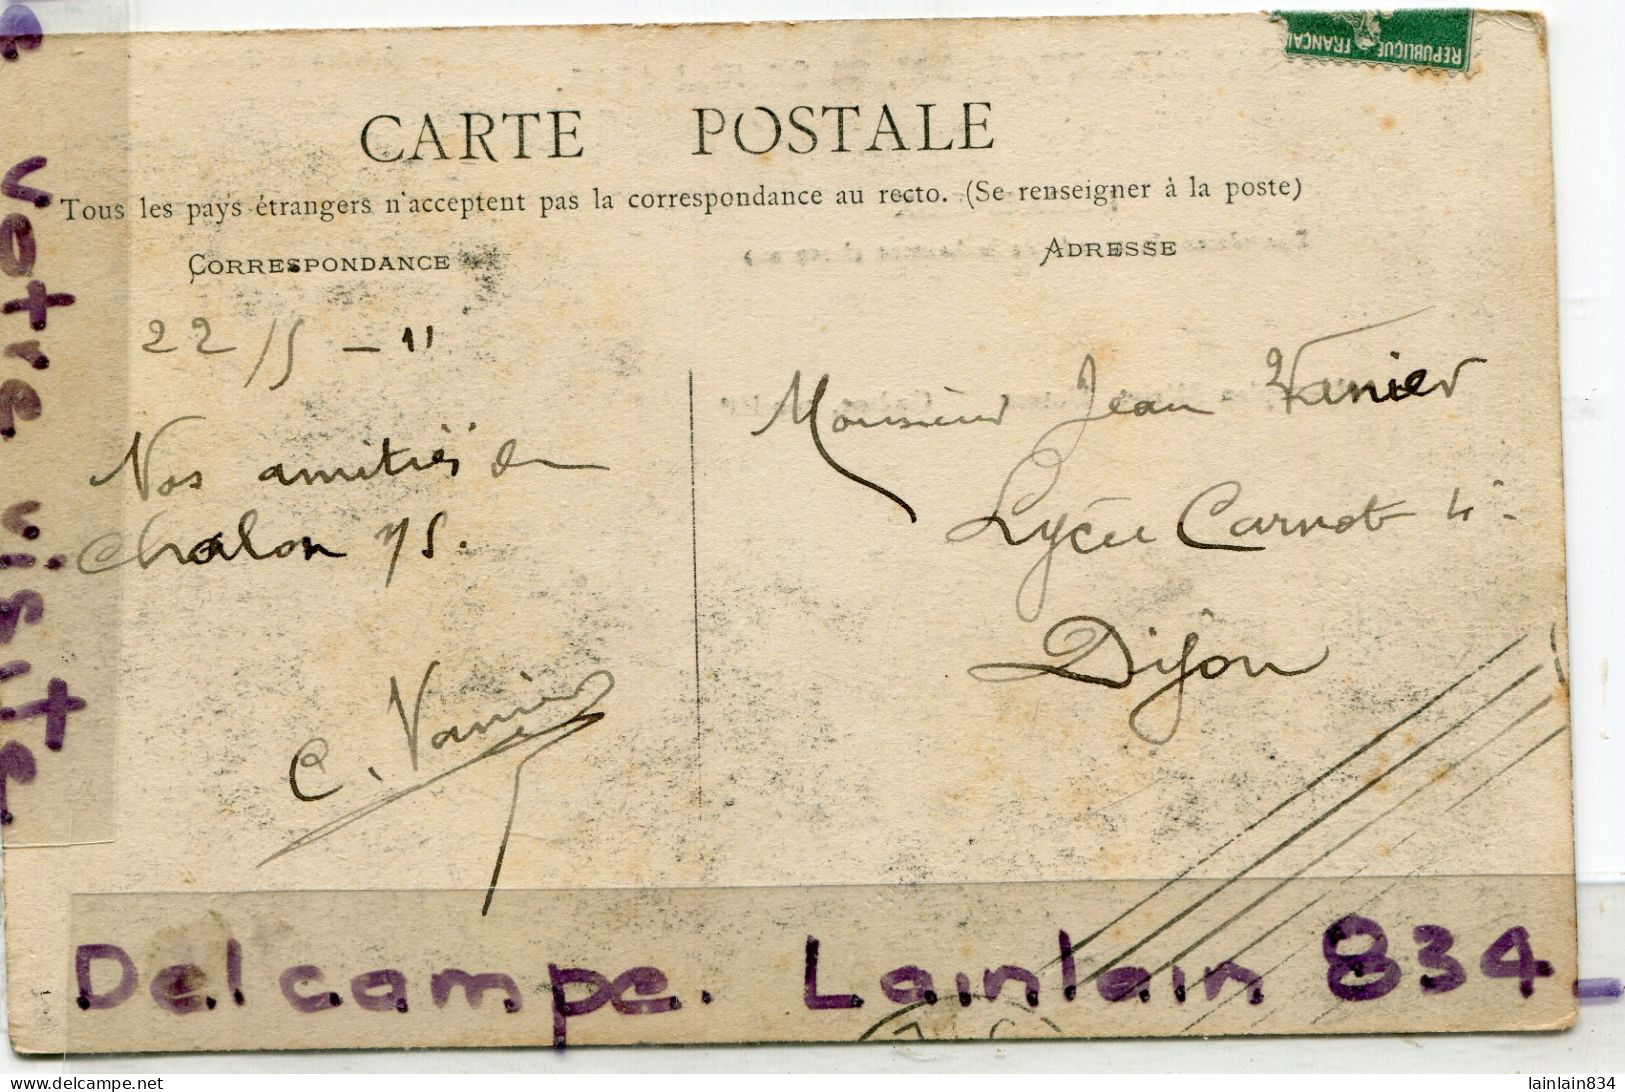 REPUBLIQUE FRANCAI
CARTE POSTALE
Tous les pays étrangers n'acceptent pas la correspondance au recto. (Se renseigner à la poste)
CORRESPONDANCE
ADRESSE
22/5 - 11
Nos amitiés de
Chalon s/S.
C. Vanier
Monsieur Jean Vanier
Lycée Carnot 4e
Dijon
votre visite.
Delcampe. Lainlain 834_
lainlain834